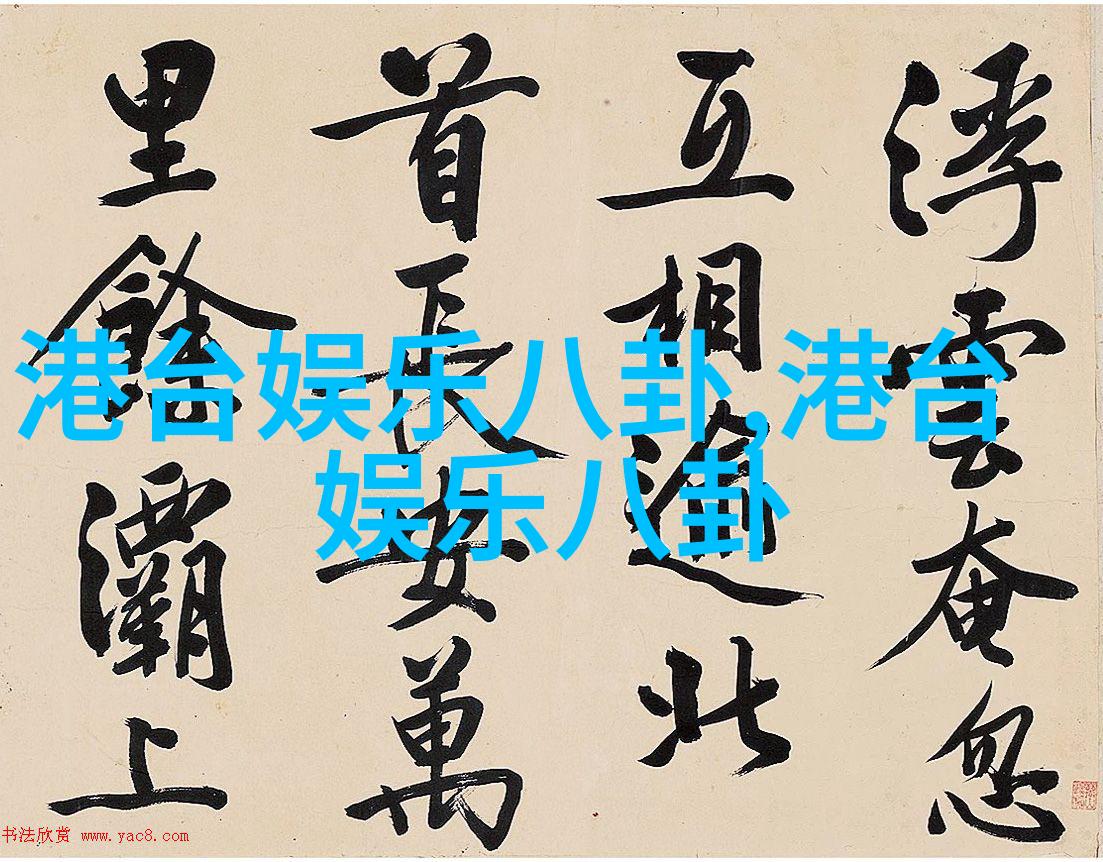 浮雲奄忽
互相逾北
首長安萬
里餘灞上
港台娱乐八卦,港台
娱乐八卦
书法欣赏 www.yac8.com